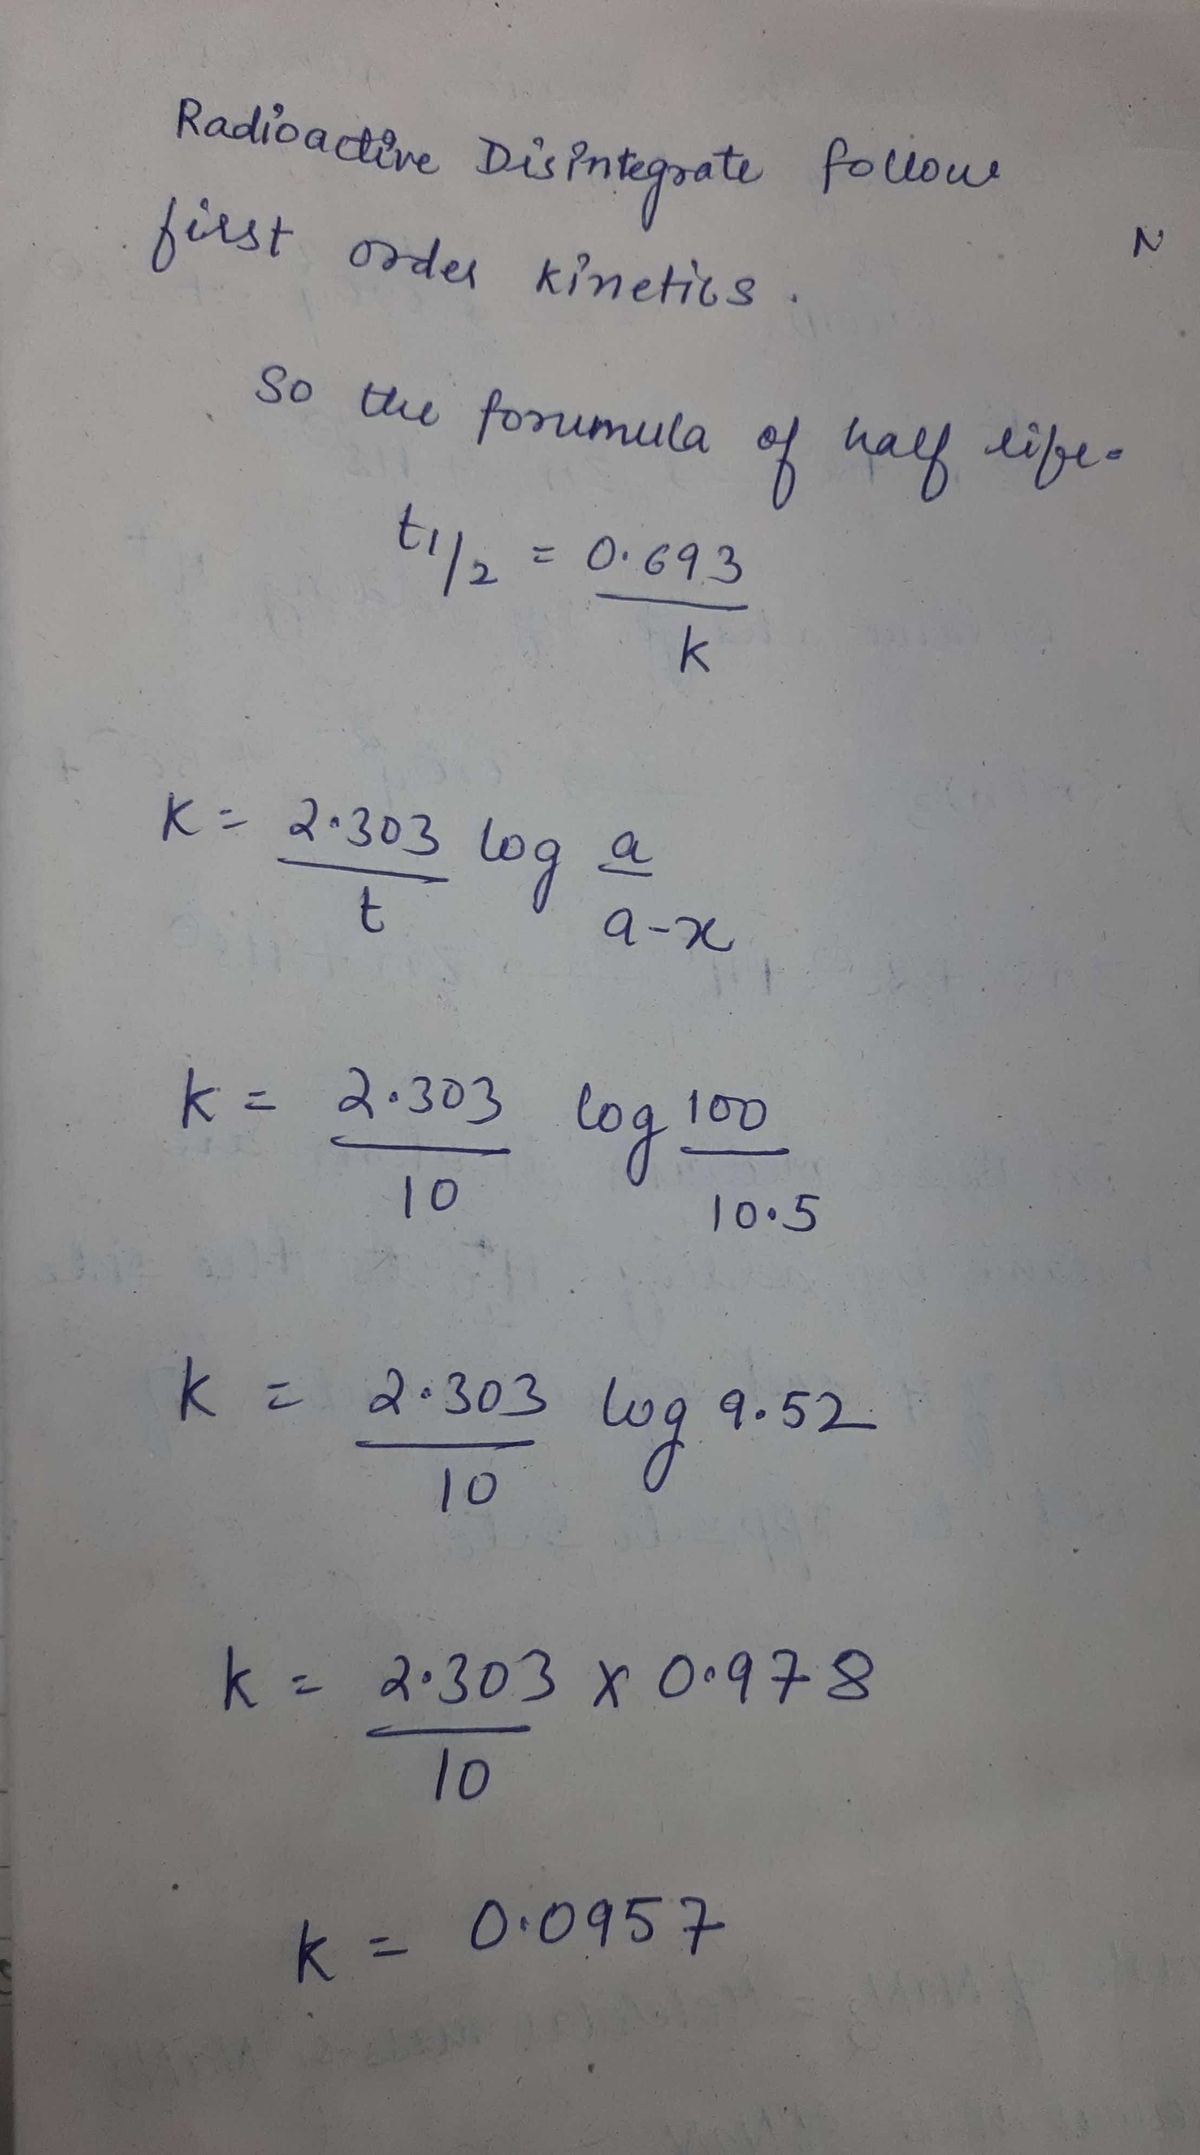 Radioactive Disintegrate follow
first order kinetics.
N
So the forumula of half life-
t1/2 = 0.693
k
K = 2.303 log a
t a-x
k = 2.303 log 100
10 10.5
k = 2.303 log 9.52
10
k = 2.303 x 0.978
10
k = 0.0957